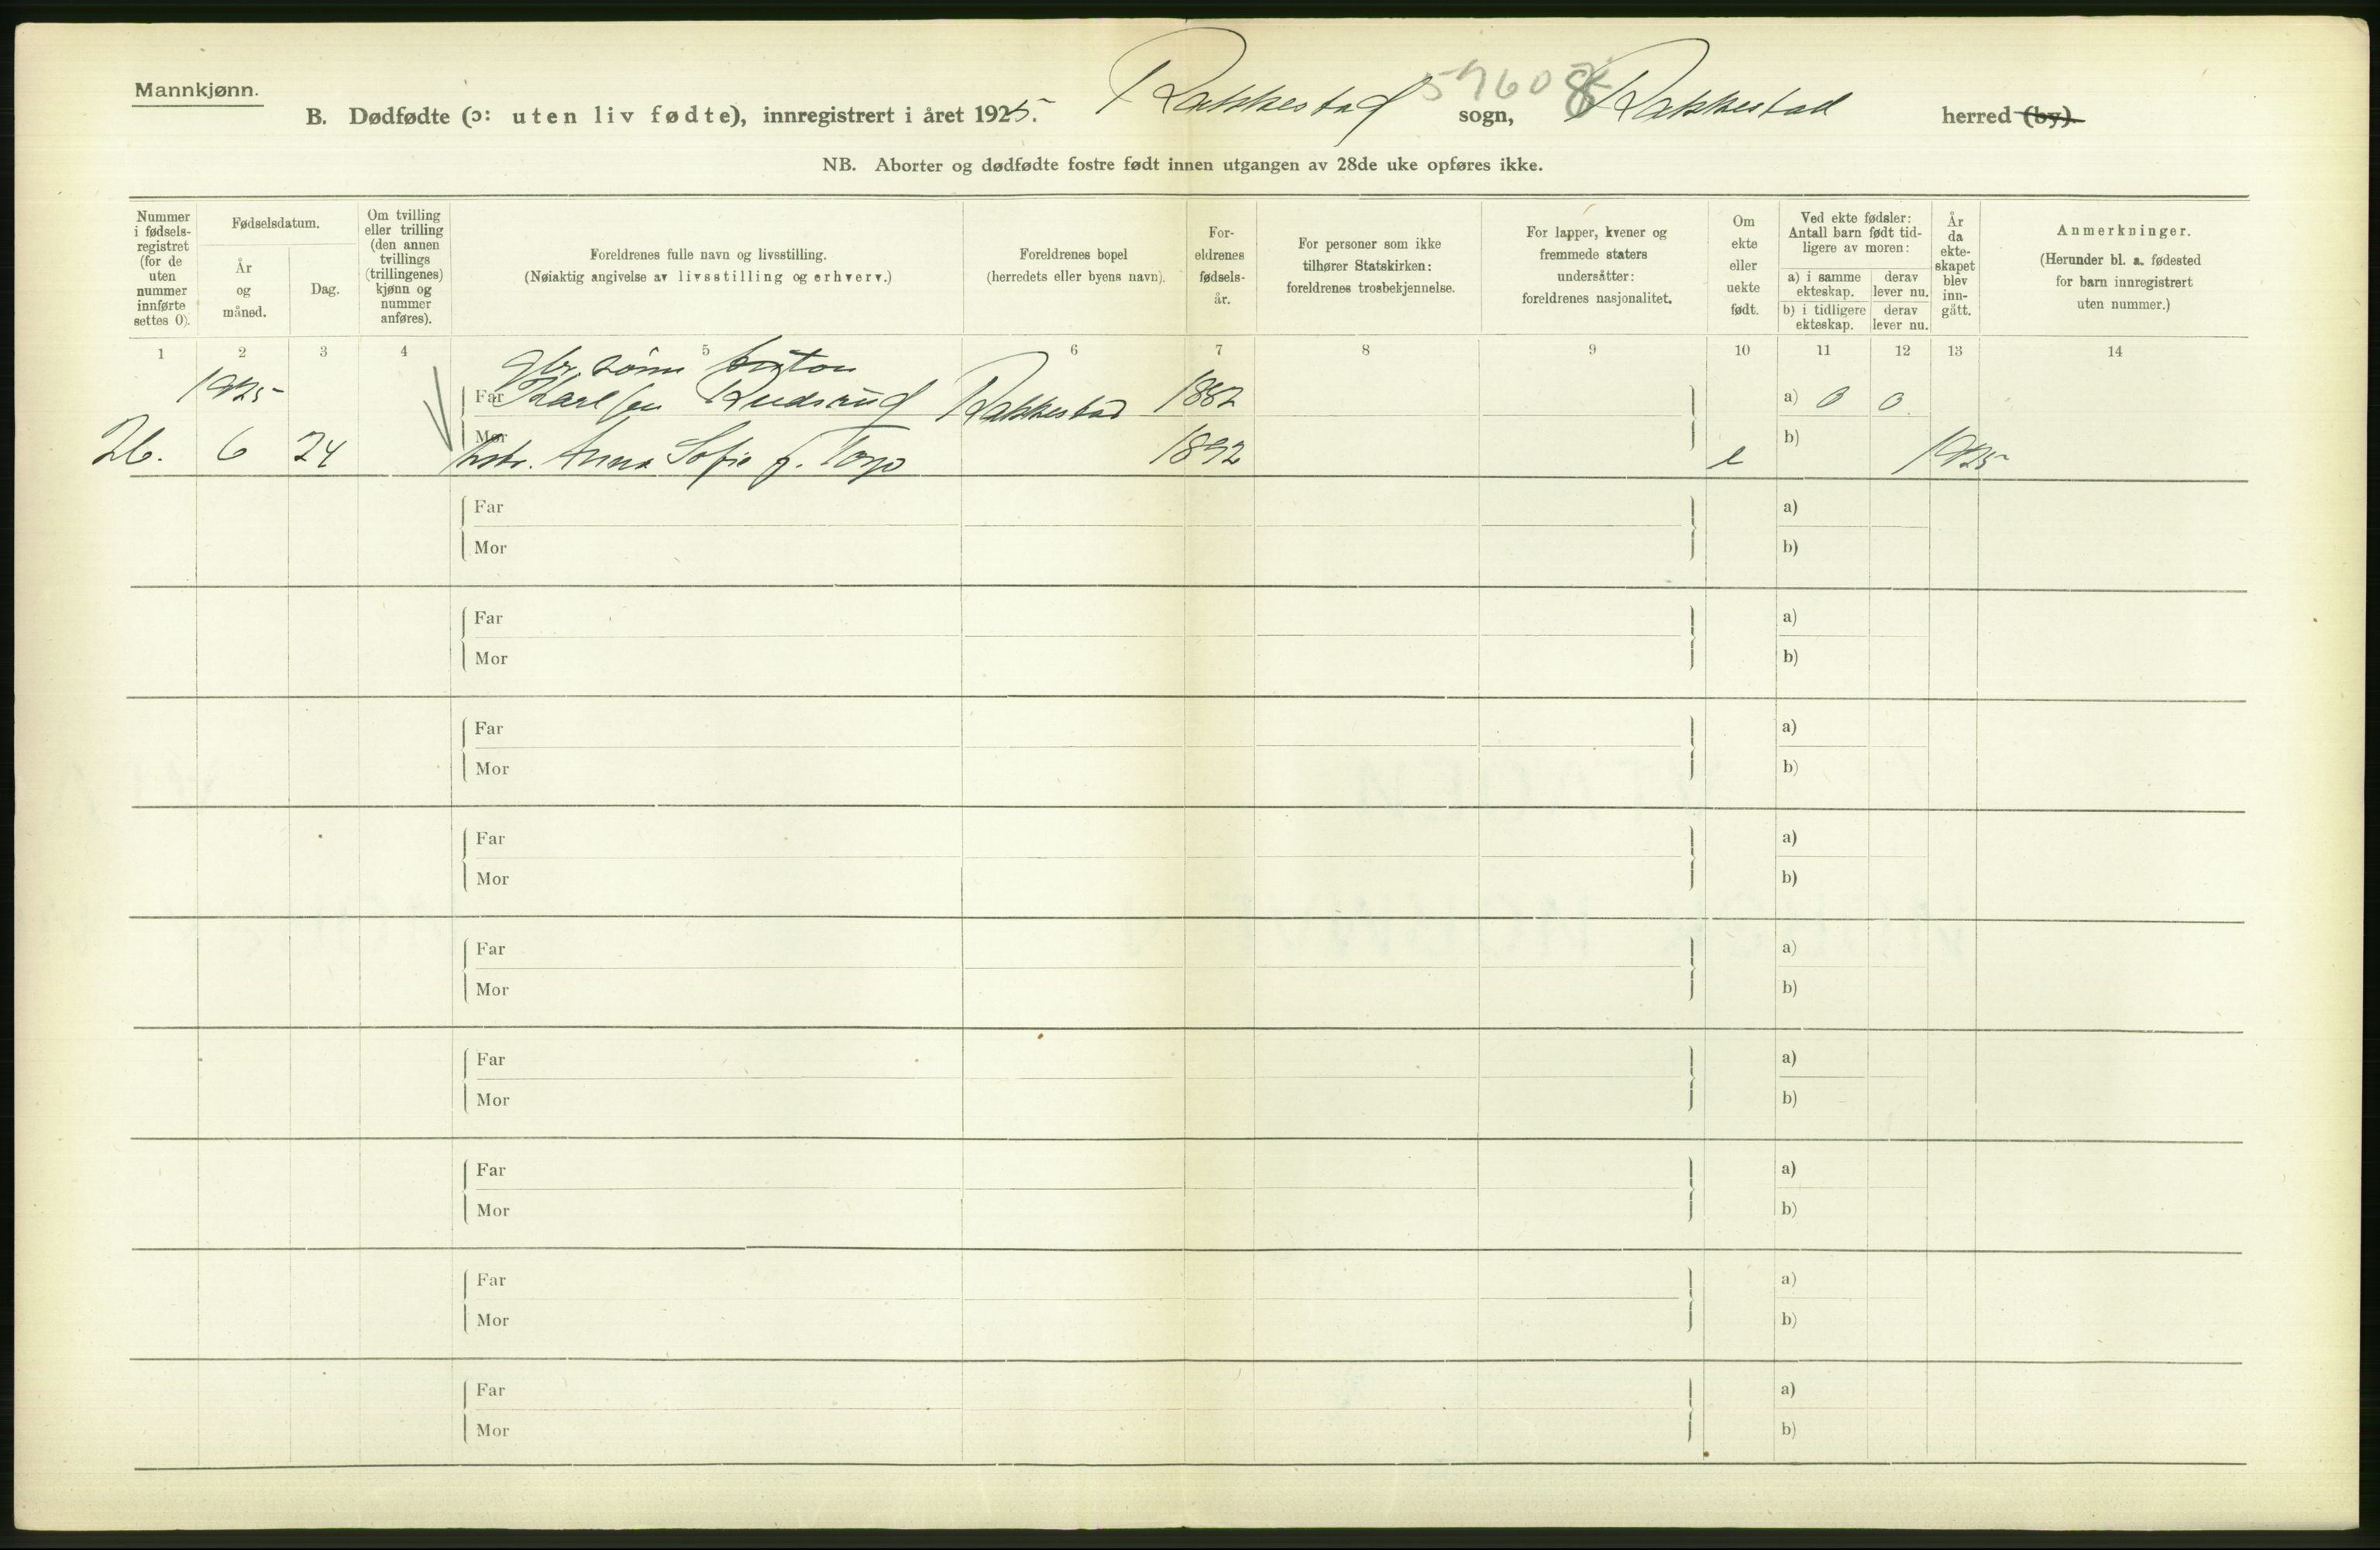 Mannkjønn.
B. Dødfødte (ɔ: uten liv fødte), innregistrert i året 1925. Rakkestad sogn, Rakkestad herred (by).
NB. Aborter og dødfødte fostre født innen utgangen av 28de uke opføres ikke.
Nummer i fødsels-registret (for de uten nummer innførte settes 0).
Fødselsdatum.
År og måned.
Dag.
Om tvilling eller trilling (den annen tvillings (trillingenes) kjønn og nummer anføres).
Foreldrenes fulle navn og livsstilling.
(Nøiaktig angivelse av livsstilling og erhverv.)
Foreldrenes bopel
(herredets eller byens navn).
For-eldrenes fødsels-år.
For personer som ikke tilhører Statskirken: foreldrenes trosbekjennelse.
For lapper, kvener og fremmede staters undersåtter: foreldrenes nasjonalitet.
Om ekte eller uekte født.
Ved ekte fødsler: Antall barn født tid-ligere av moren:
a) i samme ekteskap. derav lever nu.
b) i tidligere ekteskap. derav lever nu.
År da ekte-skapet blev inn-gått.
Anmerkninger.
(Herunder bl. a. fødested for barn innregistrert uten nummer.)
1 2 3 4 5 6 7 8 9 10 11 12 13 14
1925 Far Karlsen Rudsrud Rakkestad 1882 a) 0 0
26. 6 24 Mor Anna Sofie f. Torp 1892 e b) 1925
Far a)
Mor b)
Far a)
Mor b)
Far a)
Mor b)
Far a)
Mor b)
Far a)
Mor b)
Far a)
Mor b)
Far a)
Mor b)
Far a)
Mor b)
Far a)
Mor b)